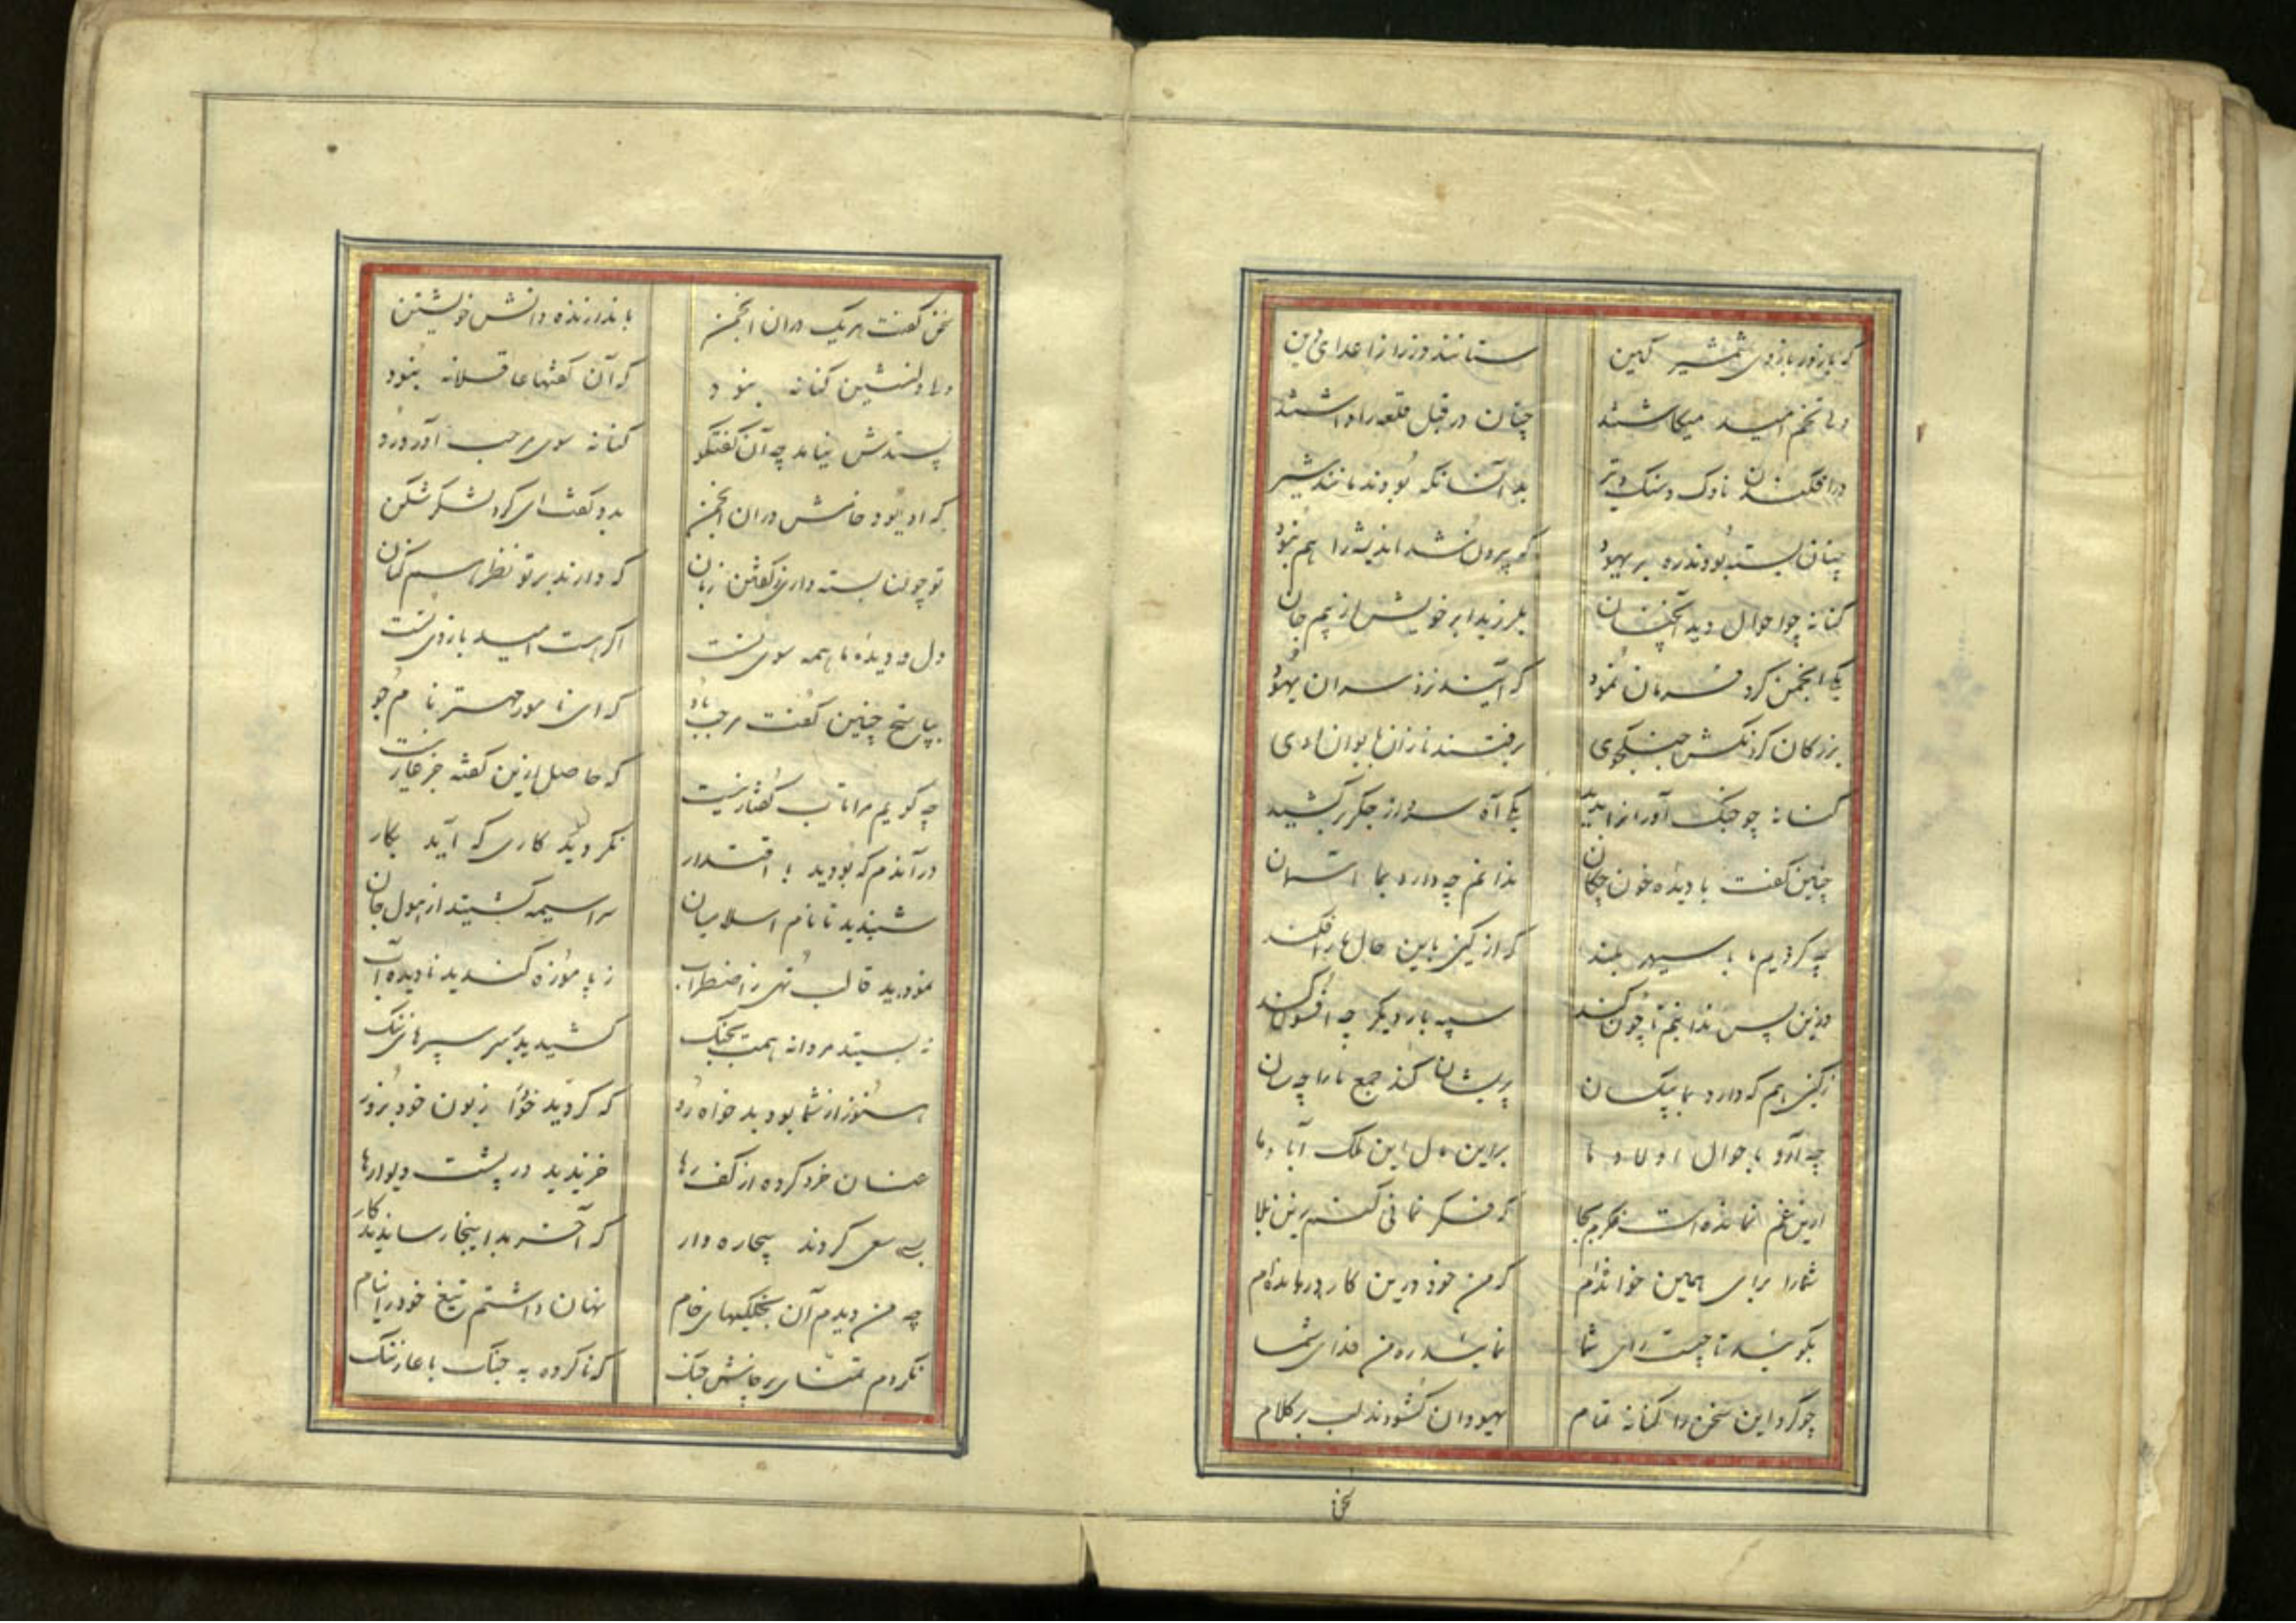 که با زور بازوی شمشیر کین ستانند دز را ز اعدای دین
ولی تخم امید میکاشتند چنان در قبل قلعه را داشتند
در افکندن ناوک و سنک و تیر بد انسانکه بودند مانند شیر
چنان بسته بودند ره بر یهود که بیرون شد اندیشه را هم نبود
کنانه چو احوال دید آنچنان بلرزید بر خویش از بیم جان
یکی انجمن کرد فرمان نمود که آیند نزدش سران یهود
بزرکان کردنکش جنکجوی برفتند نزدان بایوان اوی
کنانه چو جنک آوران را بدید یکی آه سرد از جکر برکشید
چنین کفت با دیده خون چکان ندانم چه دارد بما آسمان
چه کردیم ما با سپهر بلند که از کین باین حال ما را فکند
وزین پس ندانیم تا چون کند سپه بار دیکر چه افسون کند
زکین هم که دارد بما بیکسان پریشان کند جمع ما را چه سان
چه آرد باحوال اولاد ما براین مال این ملک آباد ما
ازین غم نمانده است فکرم بجا که فکر نمائی کنید زین بلا
شما را برای همین خوانده‌ام که من خود درین کار درمانده‌ام
بکوئید تا چیست رای شما نمایند ره من فدای شما
چو کرد این سخن را کنانه تمام یهودان کشودند لب بر کلام
سخن
سخن کفت هر یک دران انجمن باندازنده دانش خویشتن
ولی دلنشین کنانه نبود که آن کفتها عاقلانه نبود
پسندش نیامد چه آن کفتکو کنانه سوی مرحب آورد رو
که او بود خامش دران انجمن بدو کفت ای کرد لشکر شکن
تو چون بسته داری ز کفتن زبان که دارند بر تو نظر اسم کنان
دل و دیده ما همه سوی تست اکر هست امید بازوی تست
بپاسخ چنین کفت مرحب باو که ای نامور مهتر نام جو
چه کویم مرا تاب کفتار نیست که حاصل ازین کفته جز عار نیست
در آندم که بودید با اقتدار نکردید کاری که آید بکار
شنیدید تا نام اسلامیان سراسیمه کشتید از هول جان
نمودید قالب تهی ز اضطراب ز پا موزه کندید نادیده آب
نه بستید مردانه همت بجنک کشیدید بر سر سپرهای ننک
هنوز از شما بود بدخواه دور که کردید خود را زبون خود بزور
عنان خرد کرده از کف رها خزیدید در پشت دیوارها
بسی سعی کردند بیچاره وار که آخر بدا ینجا رسانیدند کار
چه من دیدم آن جنکهای خام نهان داشتم تیغ خود در نیام
نکردم تمنای پرخاش جنک که ناکرده به جنک با عار ننک